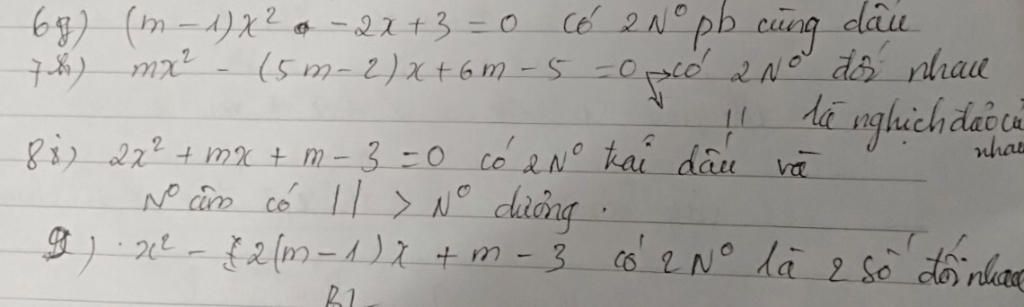 6g) (m - 1)x² - 2x + 3 = 0 có 2 N° pb cùng dấu
7h) mx² - (5m - 2)x + 6m - 5 = 0 có 2 N° đối nhau
|| là nghịch đảo của nhau
8i) 2x² + mx + m - 3 = 0 có 2 N° trái dấu và
N° âm có || > N° dương.
) x² - 2(m - 1)x + m - 3 có 2 N° là 2 số đối nhau